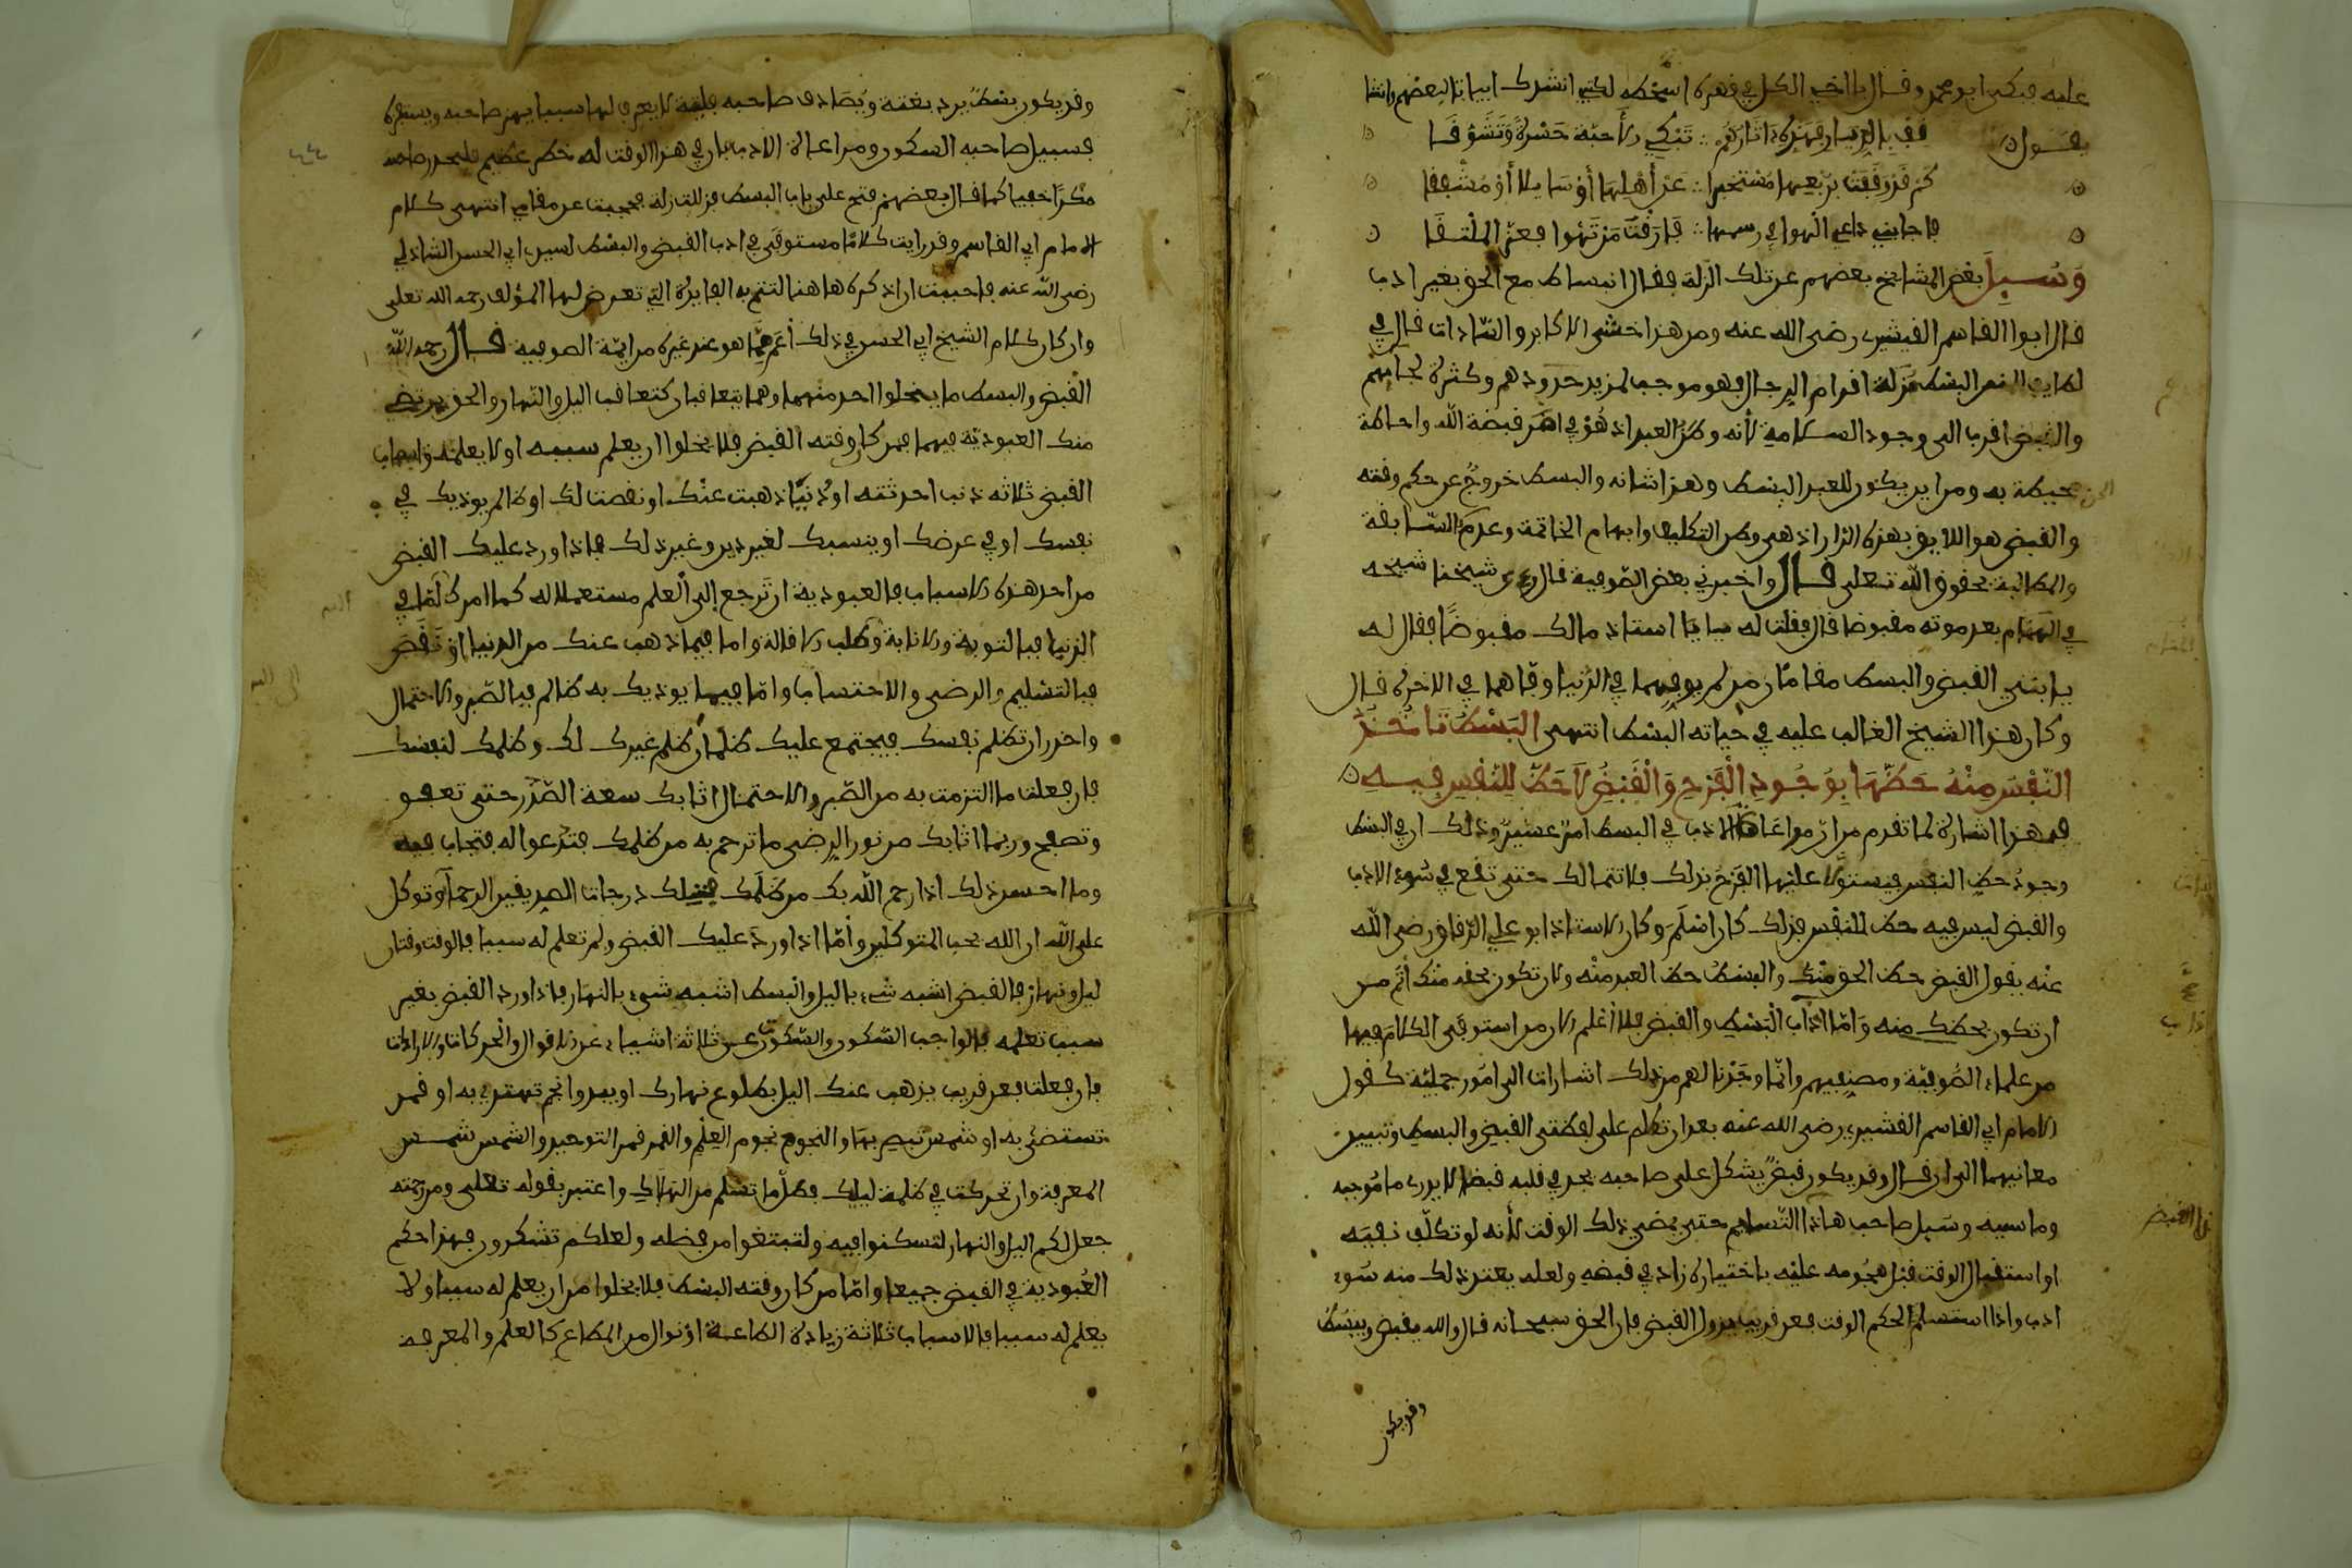 عليه فبكى ابو محمد وقال يا اخي الكل في قهره اسخطه لكني انشدك ابياتا لبعضهم وانشا
يقول ن قف بالديار فهذه اثارهم ∴ تبكي الاحبة حسرة وتشوقا
كم قد وقفت بربعها مستخبرا ∴ عن أهلها أو سايلا أو مشفقا
فاجابني داعي الهوا في رسمها ∴ فارقت من تهوا فعز الملتقا
وسيل بعض المشايخ بعضهم عن تلك الزلة فقال انبساط مع الحق بغير ادب
قال ابوا القاسم القشيري رضى الله عنه ومن هذا خشى الاكابر والسادات قال في
لطايف المنن البسط مزلة اقدام الرجال فهو موجب لمزيد حذرهم وكثرة لجايهم
والقبض اقرب الى وجود السلامة لأنه وطن العبد اذ هو في اسر قبضة الله واحاطة
الحق محيطة به ومن اين يكون للعبد البسط وهذا شانه والبسط خروج عن حكم وقته
والقبض هو اللايق بهذه الدار اذ هى وطن التكليف وابهام الخاتمة وعدم السابقة
والمطالبة بحقوق الله تعلى قال واخبرني بعض الصوفية قال رءى شيخنا شيخه
في المنام بعد موته مقبوضا قال فقلت له يا استاذ مالك مقبوضا فقال له
يا بني القبض والبسط مقامان من لم يوفهما في الدنيا وفاهما في الاخرة قال
وكان هذا الشيخ الغالب عليه في حياته البسط انتهى البسط تاخذ
النفس منه حظها بوجود الفرح والقبض لا حظ للنفس فيه ن
فى هذا اشارة لما تقدم من ان مراعاة الادب في البسط امر عسير وذلك ان في البسط
وجود حظ النفس فيستولى عليها الفرح بذلك فلا تتمالك حتى تقع في سوء الادب
والقبض ليس فيه حظ للنفس فذلك كان اسلم وكان الاستاذ ابو علي الدقاق رضى الله
عنه يقول القبض حظ الحق منك والبسط حظ العبد منه ولان تكون بحقه منك أتم من
ان تكون بحظك منه وأما اداب البسط والقبض فلا أعلم الان من استوفى الكلام فيها
من علماء الصوفية ومصنفيهم وانما وجدنا لهم من ذلك اشارات الى امور جملية كقول
الامام ابي القاسم القشيري رضى الله عنه بعد ان تكلم على لفظتى القبض والبسط وتبيين
معانيهما الى ان قال وقد يكون قبض يشكل على صاحبه يجد في قلبه قبضا لا يدرى ما موجبه
وما سببه وسبيل صاحب هاذا التسليم حتى يمضي ذلك الوقت لأنه لو تكلف نفيه
او استقبال الوقت قبل هجومه عليه باختياره زاد في قبضه ولعله يعد ذلك منه سوء
ادب واذا استسلم لحكم الوقت فعن قريب يزول القبض فان الحق سبحانه قال والله يقبض ويبسط
وقد يكون
وقد يكون بسط يرد بغتة ويصادف صاحبه فلتة لا يعرف لها سببا يهز صاحبه ويستفزه
فسبيل صاحبه السكون ومراعاة الادب فان في هذا الوقت له خطر عظيم فليحذر صاحبه
مكرا خفيا كما قال بعضهم فتح علي باب البسط فزللت زلة فحجبت عن مقامي انتهى كلام
الامام ابي القاسم وقد رايت كلاما مستوفى في ادب القبض والبسط لسيدي ابي الحسن الشاذلي
رضى الله عنه فاحببت ان اذكره هاهنا لتتم به الفايدة التي تعرض لها المؤلف رحمه الله تعلى
وان كان كلام الشيخ ابي الحسن في ذلك أعم مما هو عند غيره من ايمة الصوفية قال رحمه الله
القبض والبسط ما يخلوا احد منهما وهما يتعاقبان كتعاقب اليل والنهار والحق يرتضي
منك العبودية فيهما فمن كان وقته القبض فلا يخلوا ان يعلم سببه او لا يعلمه واسباب
القبض ثلاثة ذنب احدثته او دنيا ذهبت عنك او نقصت لك او ظالم يوذيك في
نفسك او في عرضك او ينسبك لغير دين وغير ذلك فاذا ورد عليك القبض
من احد هذه الاسباب فالعبودية ان ترجع إلى العلم مستعملا له كما امرك أما في
الذنب فبالتوبة والانابة وطلب الاقالة واما فيما ذهب عنك من الدنيا او نقص
فبالتسليم والرضى والاحتساب واما فيما يوذيك به ظالم فبالصبر والاحتمال
واحذر ان تظلم نفسك فيجتمع عليك ظلمان ظلم غيرك لك وظلمك لنفسك
فان فعلت ما التزمت به من الصبر والاحتمال اثابك سعة الصدر حتى تعفو
وتصفح وربما اثابك من نور الرضى ما ترحم به من ظلمك فتدعوا له فتجاب فيه
وما احسن ذلك اذا رحم الله بك من ظلمك فتلك درجات الصديقين الرحما وتوكل
على الله ان الله يحب المتوكلين وأما اذا ورد عليك القبض ولم تعلم له سببا فالوقت وقتان
ليل ونهار فالقبض اشبه شيء باليل والبسط اشبه شيء بالنهار فاذا ورد القبض بغير
سبب تعلمه فالواجب السكون والسكون عن ثلاثة اشياء عن الاقوال والحركات والارادات
فان فعلت فعن قريب يذهب عنك اليل بطلوع نهارك او يبدوا نجم تهتدي به او قمر
تستضئ به او شمس تبصر بها والنجوم نجوم العلم والقمر قمر التوحيد والشمس شمس
المعرفة وان تحركت في ظلمة ليلك فقل ما تسلم من الهلاك واعتبر بقوله تعلى ومن رحمته
جعل لكم اليل والنهار لتسكنوا فيه ولتبتغوا من فضله ولعلكم تشكرون فهذا حكم
العبودية في القبض جميعا واما من كان وقته البسط فلا يخلوا من ان يعلم له سببا او لا
يعلم له سببا فالاسباب ثلاثة زيادة الطاعة او نوال من المطاع كالعلم والمعرفة